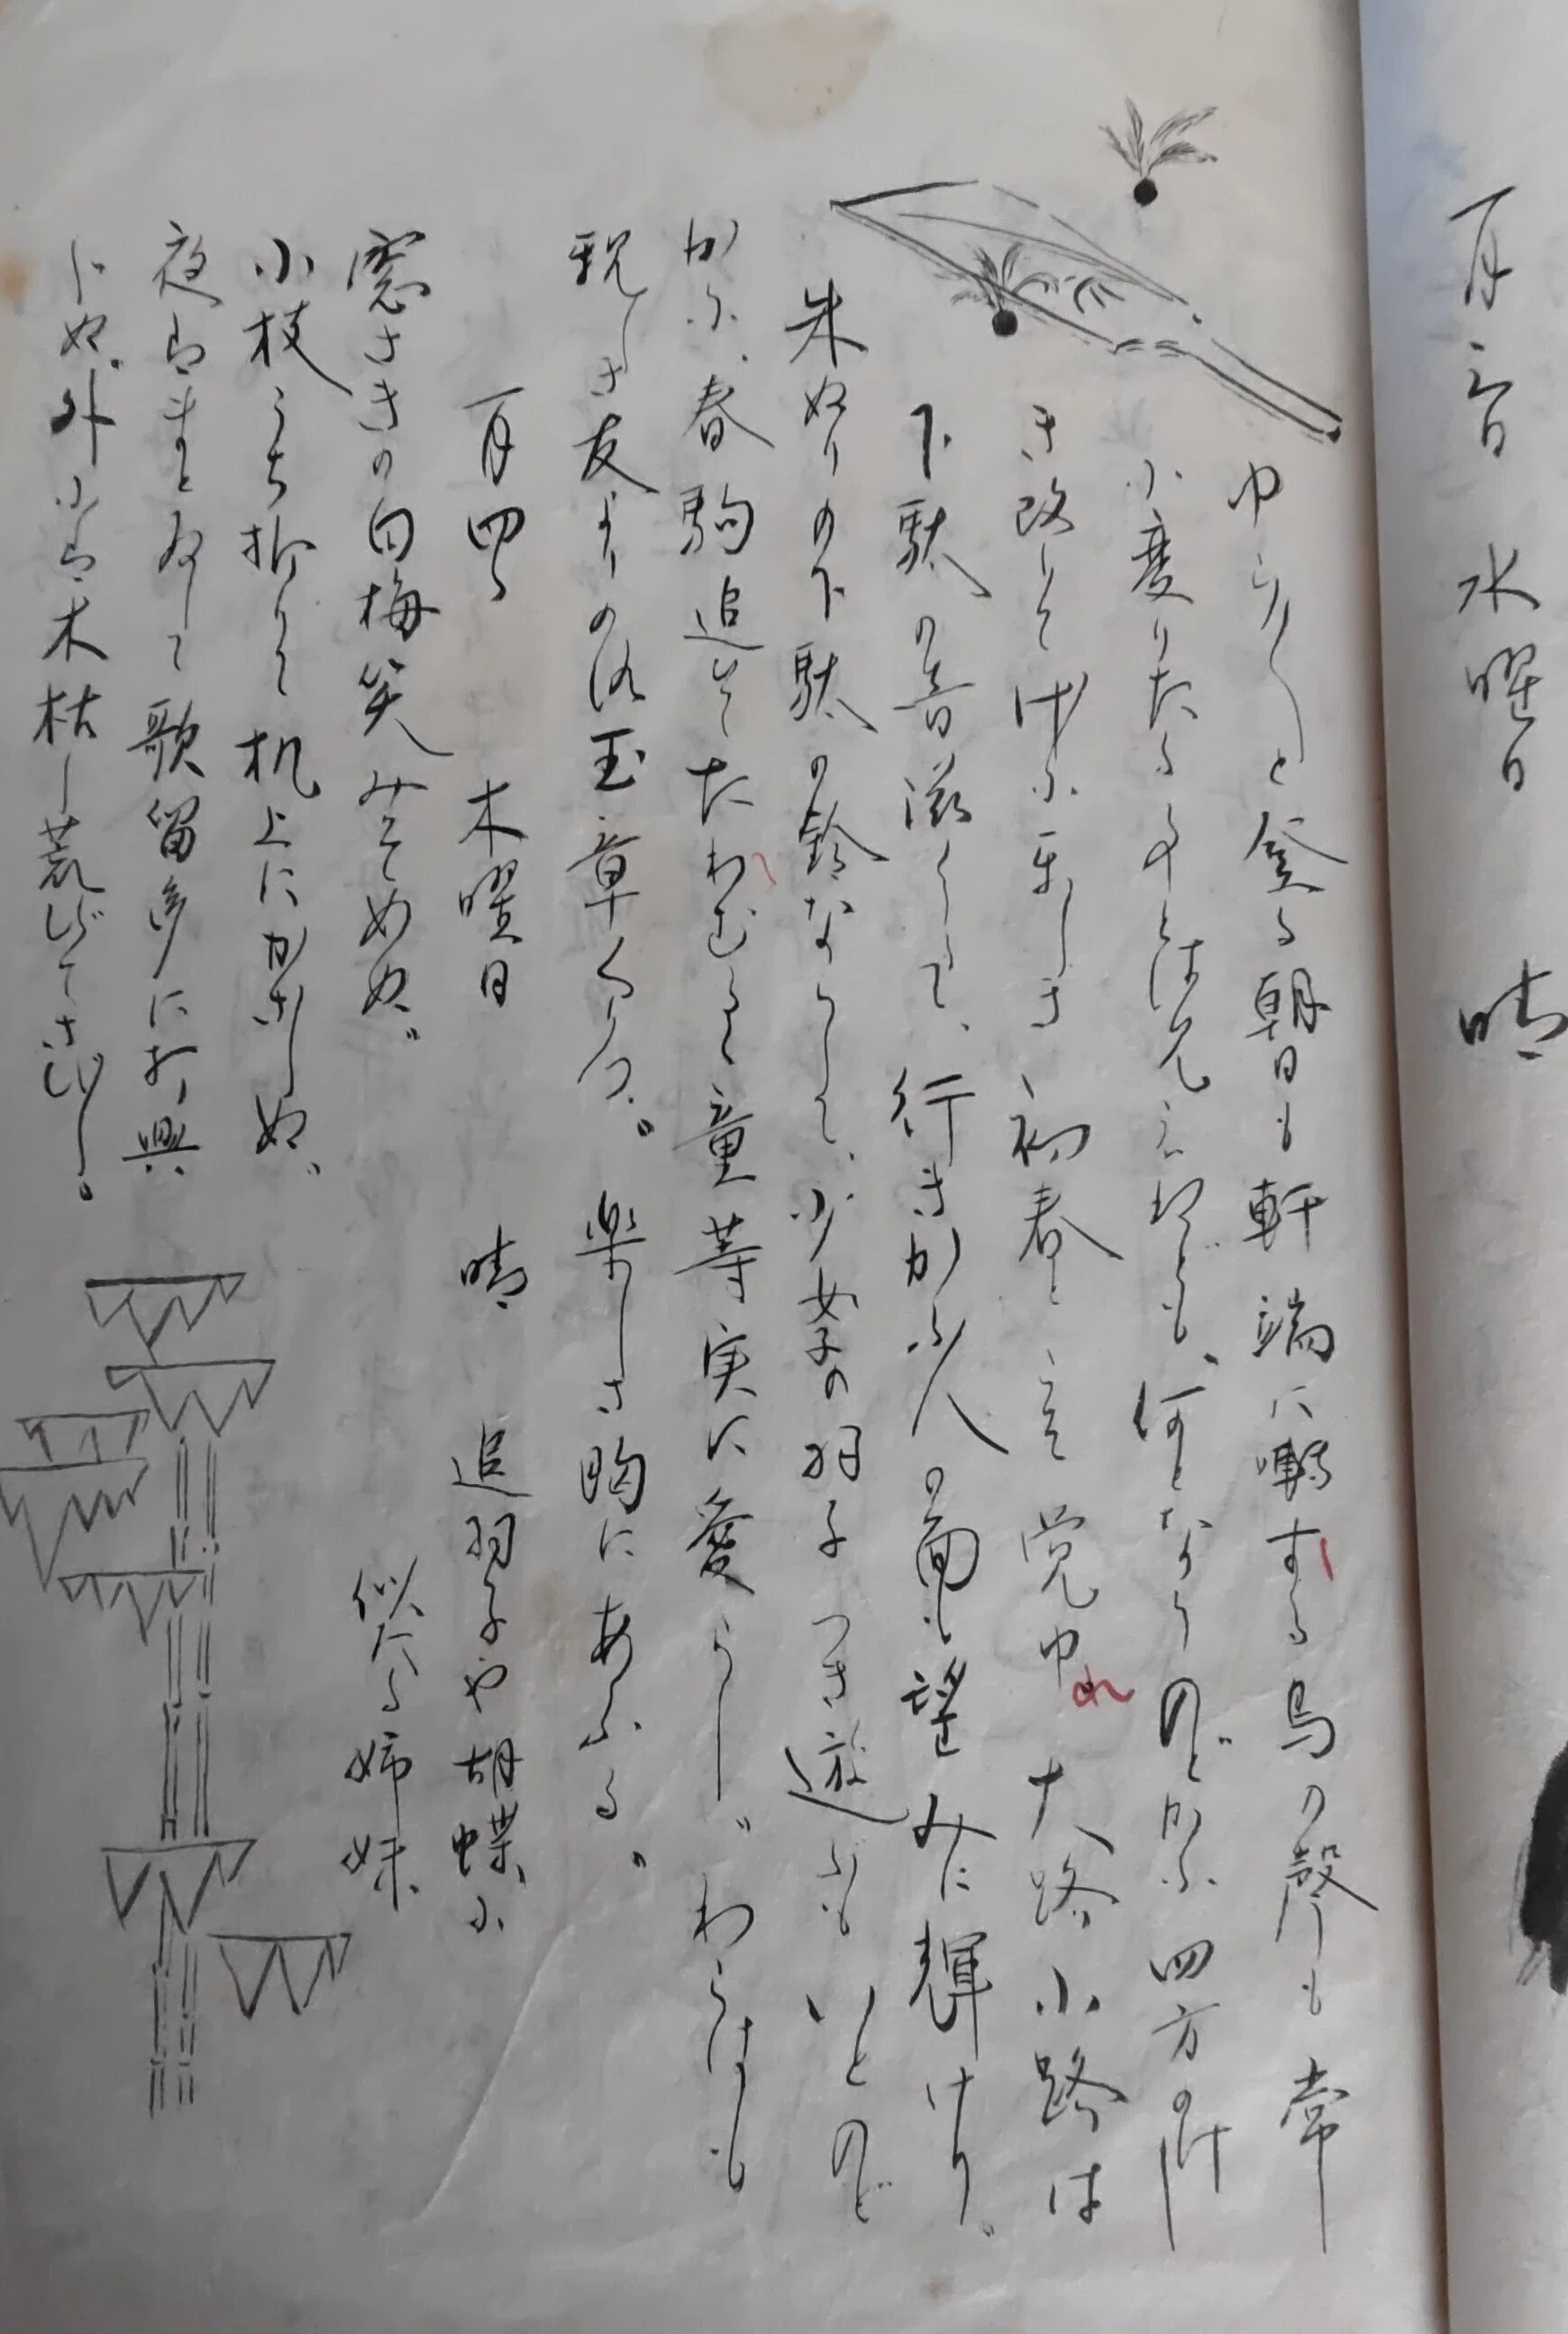 一月三日 水曜日 晴
ゆらりと登る朝日も軒端に囀する鳥の聲も常
に変りたる事とは見えねども、何となうのどかに四方のけし
き改りてげに楽しき初春と云へ覚ゆ 大路小路は
下駄の音滋くして、行きかふ人の面も望みに輝けり。
朱ぬりの下駄の鈴ならして、少女子の羽子つき遊ぶもいとのど
かに、春駒追ひてたわむる童等実に愛らし。わらはも
親しき友よりの玉章くりつ。楽しさ胸にあふる。
一月四日 木曜日 晴 追羽子や胡蝶に
似たる姉妹
窓さきの白梅笑みそめぬ。
小枝うち折りて机上にかざしぬ。
夜はまとゐして歌留多に打興
じぬ。外には木枯し荒びてさびし。